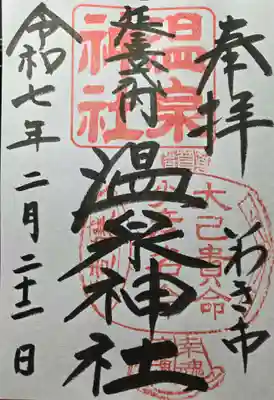 奉拝
いわき市
延喜式内
温泉神社
令和七年二月二十一日
温泉
神社
大己貴命
少彦名命